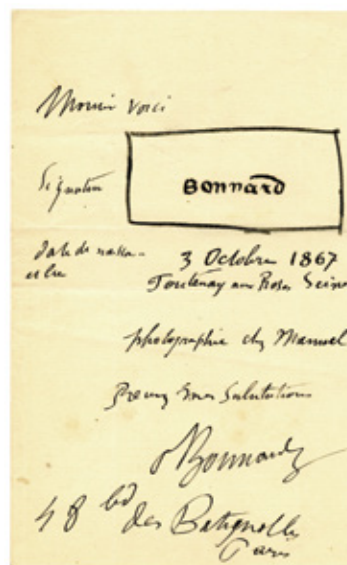 Monsieur voici
Signature
Bonnard
date de naissance
et lieu
3 Octobre 1867
Fontenay aux Roses Seine
photographie chez Manuel
Salutations
PBonnard
48 bd
des Batignolles
Paris